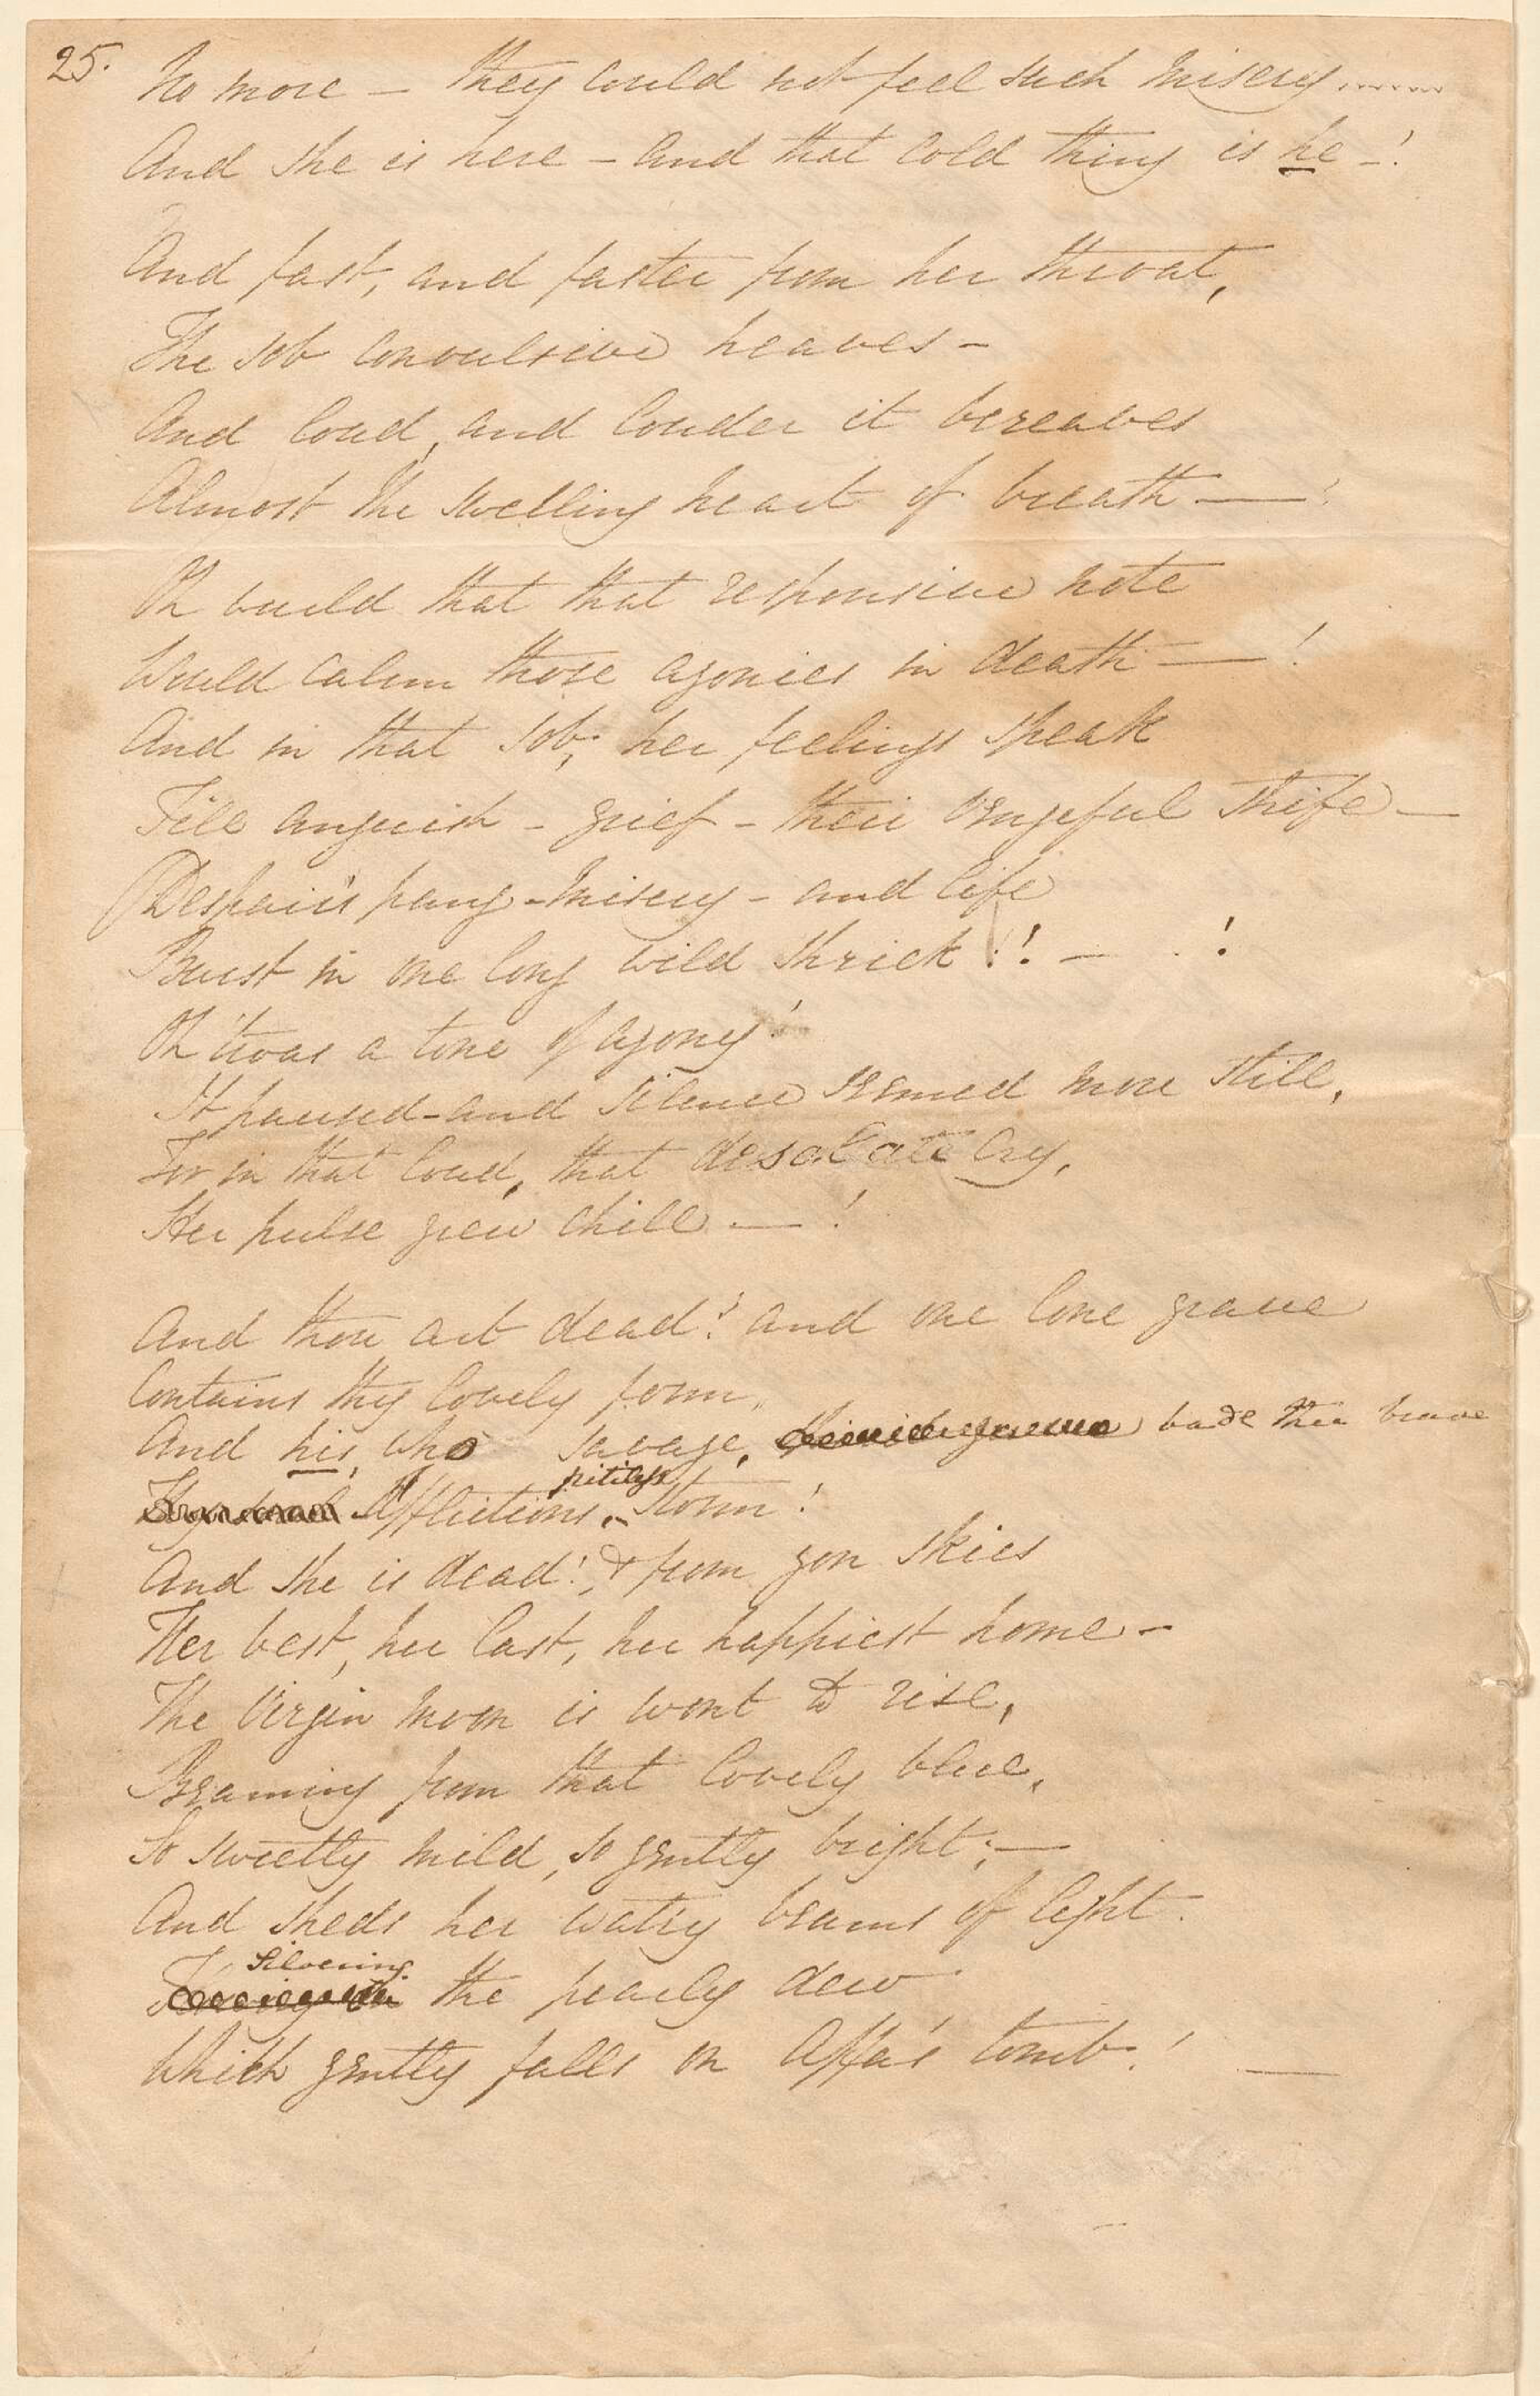 25.
No more – they could not feel such misery.......
And she is here – and that cold thing is he –!
And fast, and faster from her throat,
The sob convulsive heaves –
And loud, and louder it bereaves
Almost the swelling heart of breath —!
Oh would that that responsive note
Would calm those agonies in death —!
And in that sob, her feelings speak
Till anguish – grief – their vengeful strife —
Despair's pang – misery – and life
Burst in one long wild shriek!! – . !
Oh 'twas a tone of agony!
It paused – and silence seemed more still,
For in that loud, that desolate cry,
Her pulse grew chill —!
And thou art dead! and one lone grave
Contains thy lovely form,
And his, who savage, bade thee brave
pitiless
Afflictions, storm!
And she is dead! & from yon skies
Her best, her last, her happiest home –
The Virgin moon is wont to rise,
Beaming from that lovely blue,
So sweetly mild, so gently bright; —
And sheds her watry beams of light.
Silvering
the pearly dew
Which gently falls on Affa's tomb! —